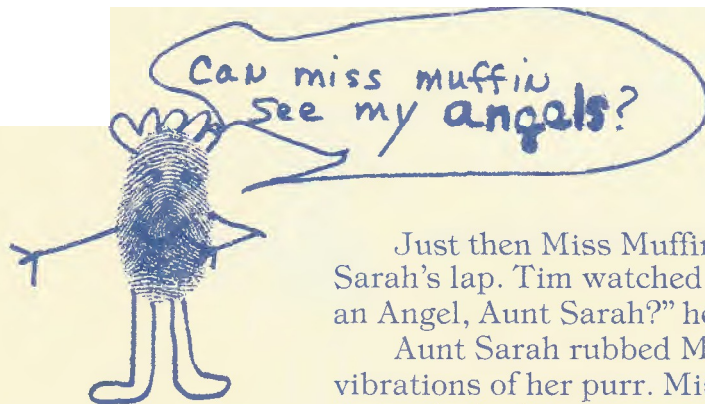 Can miss muffin
See my angels?
Just then Miss Muffin
Sarah's lap. Tim watched
an Angel, Aunt Sarah?" he
Aunt Sarah rubbed M
vibrations of her purr. Mis